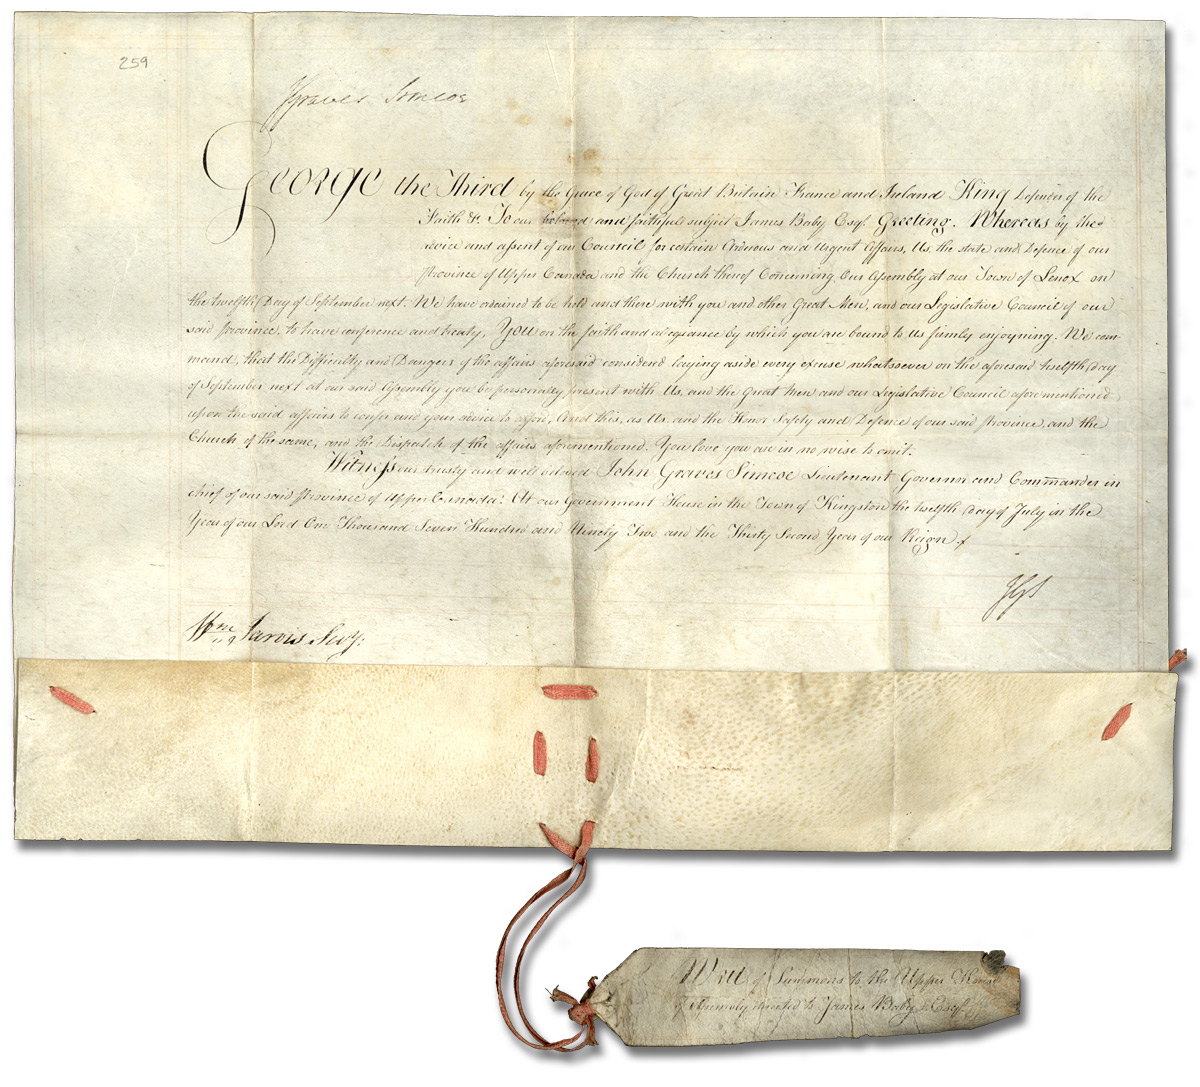 259
J Graves Simcoe
George the Third by the Grace of God of Great Britain France and Ireland King Defender of the
Faith &c. To our beloved and faithful subject James Baby Esqr. Greeting. Whereas by the ad=
vice and assent of our Council for certain Arduous and Urgent Affairs, Us, the state and Defence of our
Province of Upper Canada and the Church thereof Concerning, Our Assembly at our Town of Lenox on
the twelfth Day of September next. We have ordained to be held and there with you and other Great Men, and our Legislative Council of our
said Province, to have conference and treaty, You on the faith and allegiance by which you are bound to Us firmly enjoyning. We com-
mand, that the Difficulty and Dangers of the affairs aforesaid considered laying aside every excuse whatsoever on the aforesaid twelfth day
of September next at our said Assembly you be personally present with Us, and the Great Men and our Legislative Council aforementioned
upon the said affairs to confer and your advice to afford, And this, as Us, and the Honor Safety and Defence of our said Province, and the
Church of the same, and the Dispatch of the affairs aforementioned. You love you are in no wise to omit.
Witness our trusty and well beloved John Graves Simcoe Lieutenant Governor and Commander in
chief of our said Province of Upper Canada: At our Government House in the Town of Kingston the twelfth day of July in the
Year of our Lord One Thousand Seven Hundred and Ninety Two and the Thirty Second Year of our Reign.
JGS
Wm Jarvis Secy:
Writ of Summons to the Upper House
of Assembly directed to James Baby Esqr.